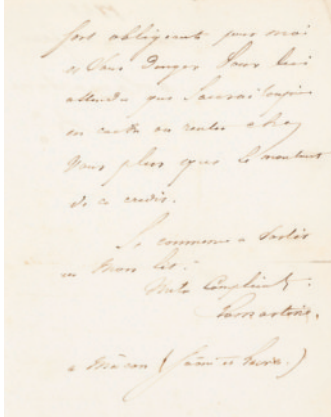 fort obligeant pour moi
et sans danger pour lui
attendu que j'aurai toujours
en
vous plus que le montant
de ce crédit.
Je commence à sortir
de mon lit.
Mille Compliments.
Lamartine.
à Mâcon (Saône et Loire.)